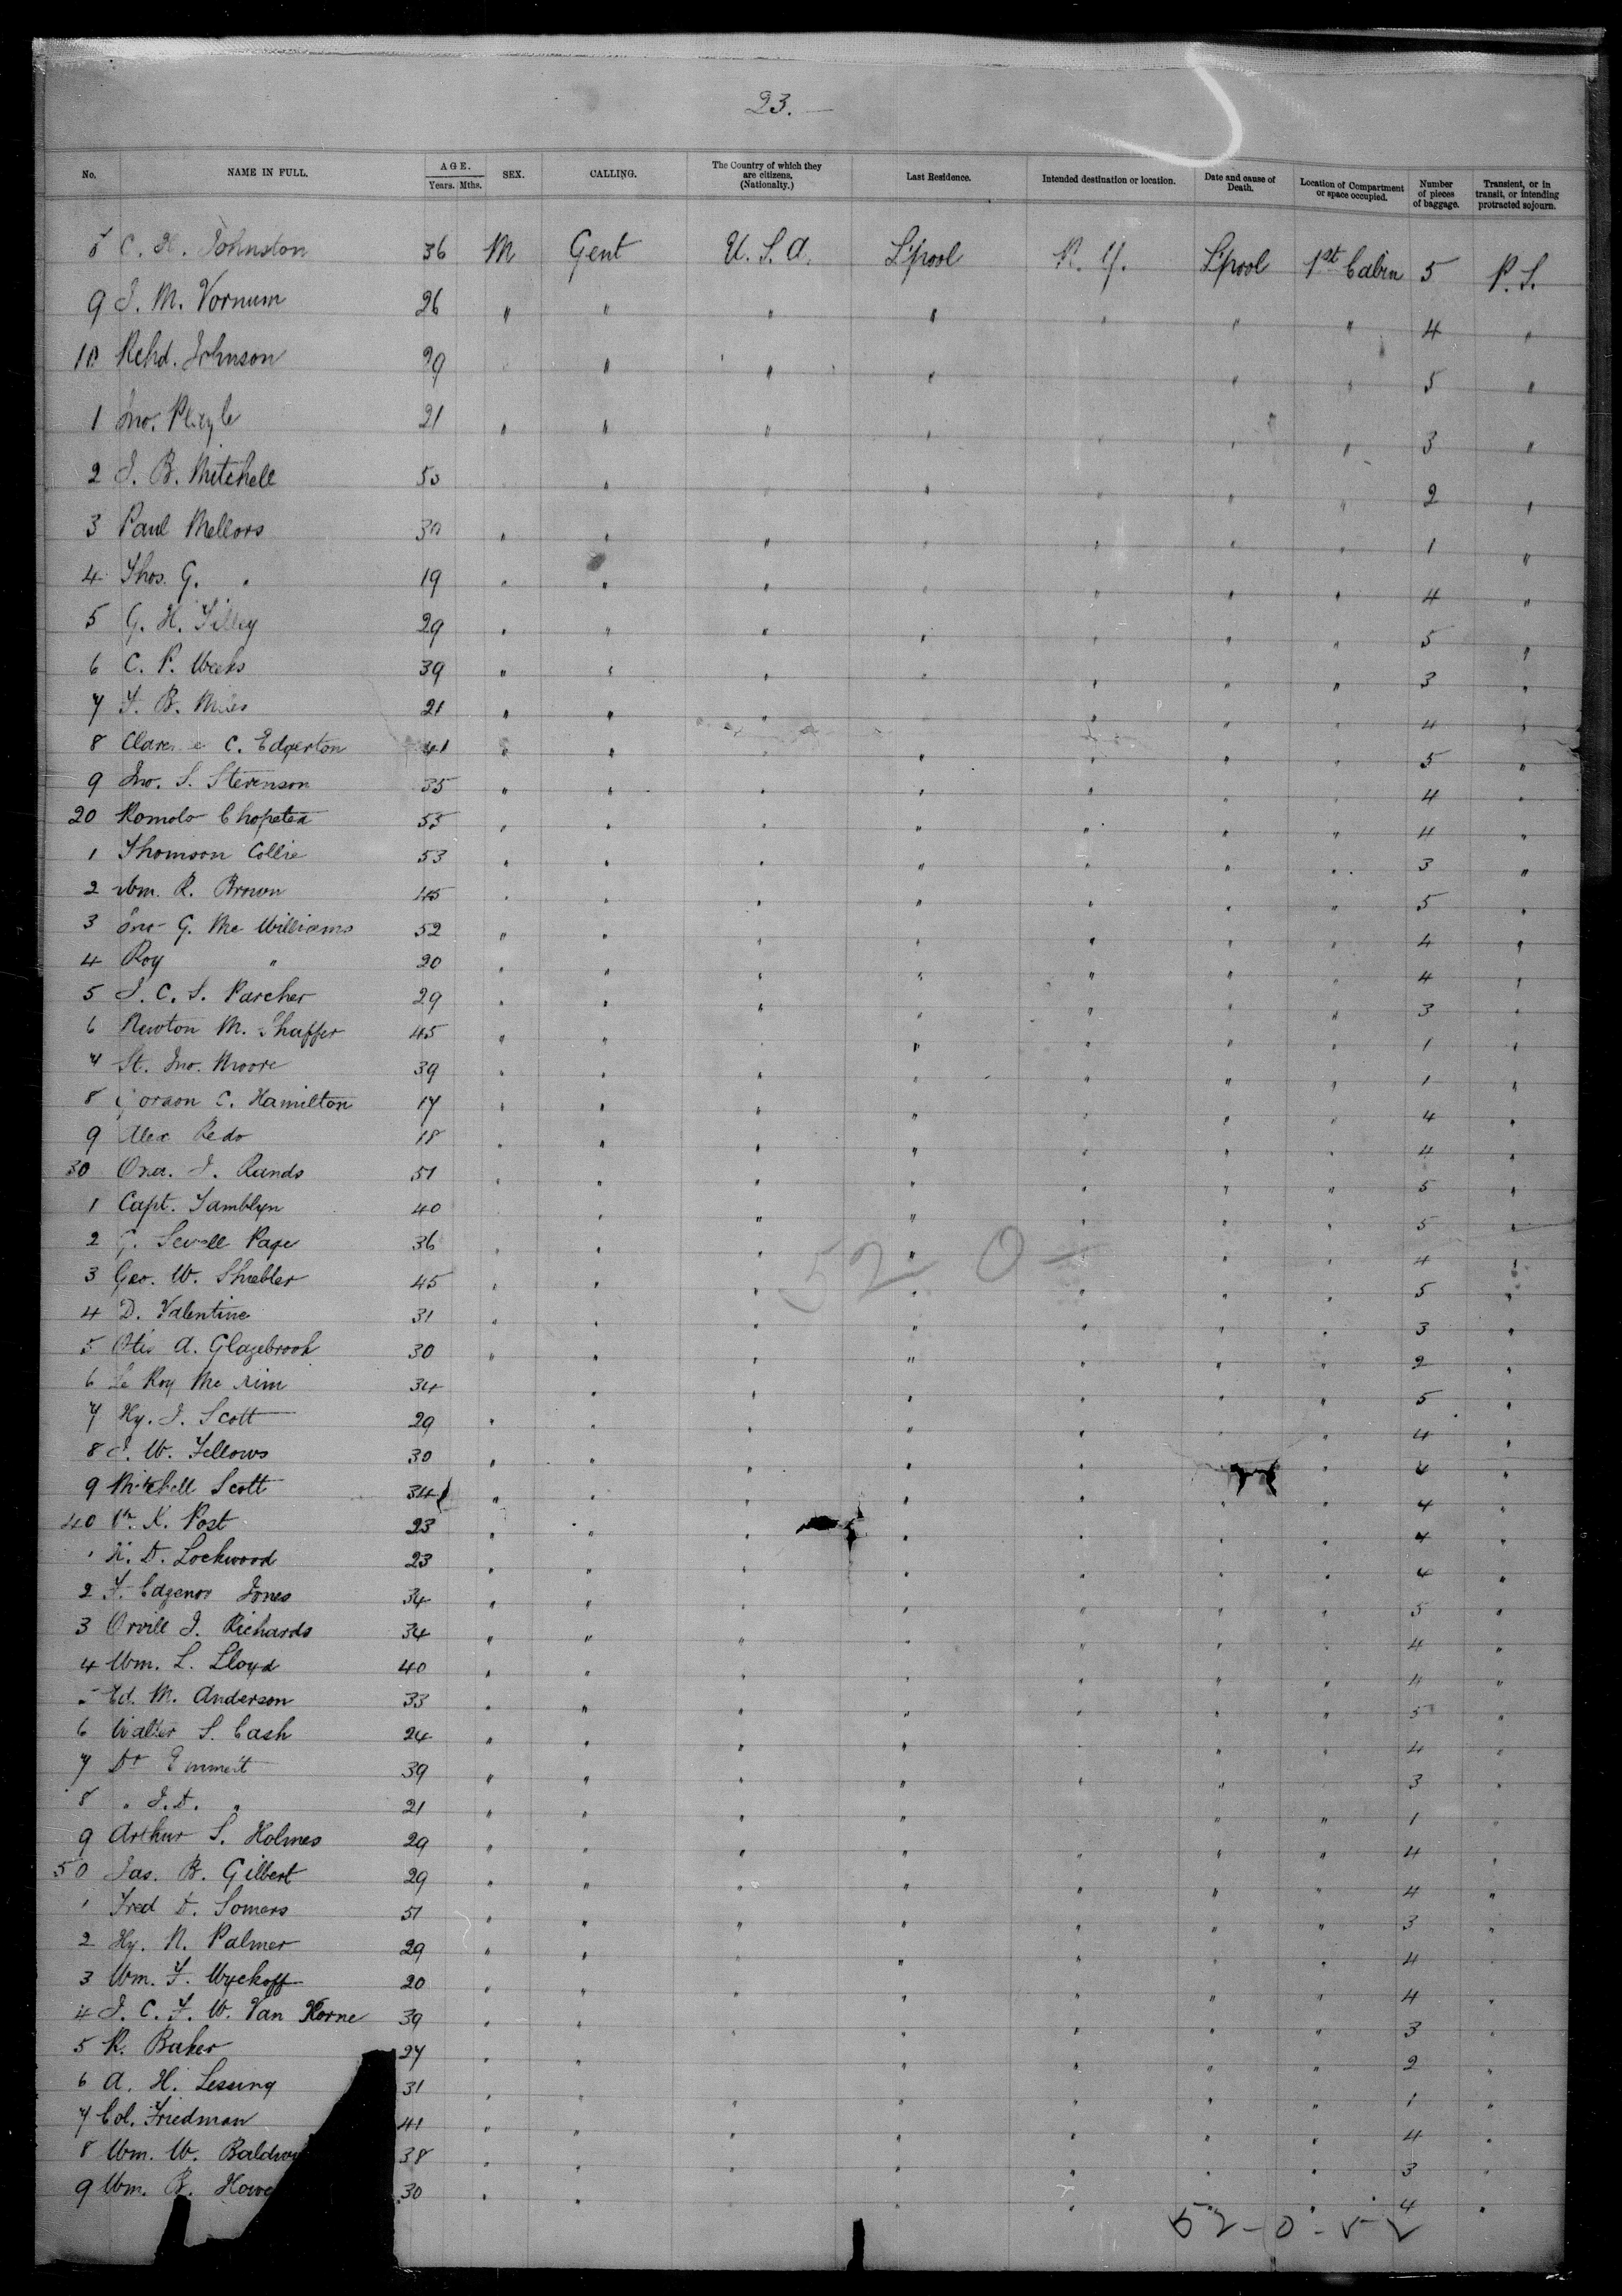 23. —
No. NAME IN FULL. AGE. Years. Mths. SEX. CALLING. The Country of which they are citizens. (Nationality.) Last Residence. Intended destination or location. Date and cause of Death. Location of Compartment or space occupied. Number of pieces of baggage. Transient, or in transit, or intending protracted sojourn.
8 C. H. Johnston 36 M Gent U. S. A. L'pool N. Y. L'pool 1st Cabin 5 P. S.
9 J. M. Vornum 26 " " " " " " " 4 "
10 Rchd. Johnson 29 " " " " " 5 "
1 Jno. 21 " " " " " " " 3 "
2 J. B. Mitchell 53 " " " " " 2 "
3 Paul Mellors 30 " " " " " " " 1 "
4 Thos. G. " 19 " " " " " " " 4 "
5 G. H. Tilley 29 " " " " " " " 5 "
6 C. P. Weeks 39 " " " " " " " 3 "
7 F. B. Miles 21 " " " " " " 4 "
8 Clarence C. Edgerton 41 " " " " " " " 5 "
9 Jno. S. Stevenson 35 " " " " " " " 4 "
20 Romolo Chopetea 55 " " " " " " " 4 "
1 Thomson Collie 53 " " " " " " " 3 "
2 Wm. R. Brown 45 " " " " " " " 5 "
3 Jno G. Mc Williams 52 " " " " " " " 4 "
4 Roy " 20 " " " " " " " 4 "
5 J. C. S. Parcher 29 " " " " " " " 3 "
6 Newton M. Shaffer 45 " " " " " " 1 "
7 St. Jno. Moore 39 " " " " " " " 1 "
8 Gordon C. Hamilton 17 " " " " " " " 4 "
9 Alex Redo 18 " " " " " " " 4 "
30 J. Rands 51 " " " " " " " 5 "
1 Capt. Tamblyn 40 " " " " " " 5 "
2 G. Sewell Page 36 " " " " " " 4 "
3 Geo. W. Shiebler 45 " " " " " " 5 "
52 0 —
4 D. Valentine 31 " " " " " " " 3 "
5 Otis A. Glazebrook 30 " " " " " " " 2 "
6 Le Roy Mc 34 " " " " " " 5 "
7 Hy. J. Scott 29 " " " " " " 4 "
8 J. W. Fellows 30 " " " " " " 4 "
9 Mitchell Scott 34 " " " " " " 4 "
40 K. Post 23 " " " " " " " 4 "
1 H. D. Lockwood 23 " " " " " " " 4 "
2 F. Cazenov Jones 34 " " " " " " " 5 "
3 Orvill J. Richards 34 " " " " " " " 4 "
4 Wm. L. Lloyd 40 " " " " " " " 4 "
5 Ed. M. Anderson 33 " " " " " " " 5 "
6 Walter S. Cash 24 " " " " " " 4 "
7 Dr Emmett 39 " " " " " " 3 "
8 " J. D. " 21 " " " " " " 1 "
9 Arthur S. Holmes 29 " " " " " " " 4 "
50 Jas. B. Gilbert 29 " " " " " " " 4 "
1 Fred D. Somers 51 " " " " " " " 3 "
2 Hy. N. Palmer 29 " " " " " " " 4
3 Wm. F. Wyckoff 20 " " " " " " " 4 "
4 J. C. F. W. Van Horne 39 " " " " " " " 3 "
5 R. Baker 27 " " " " " " 2 "
6 A. H. Lessing 31 " " " " " " " 1 "
7 Col. Friedman 41 " " " " " " " 4 "
8 Wm. W. Baldw 38 " " " " " " " 3 "
9 Wm. B. Howe 30 " " " " " 4 "
52-0-